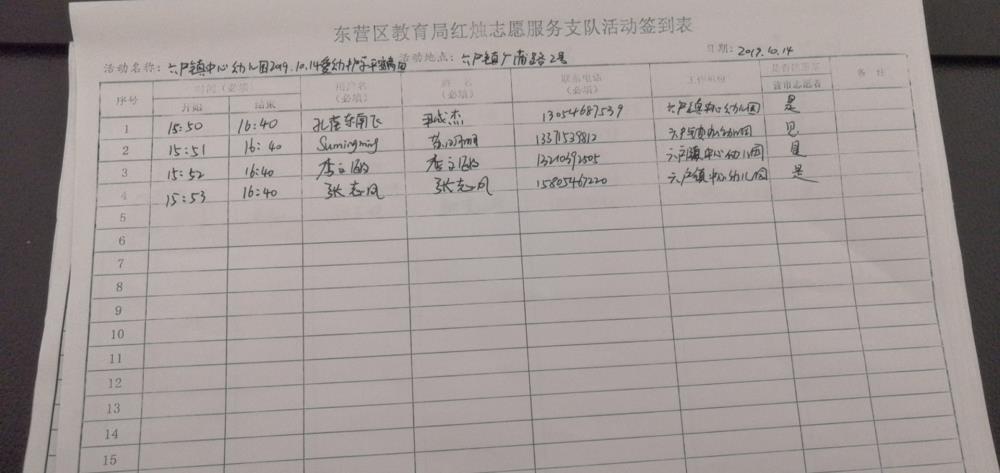 东营区教育局红烛志愿服务支队活动签到表
活动名称：六户镇中心幼儿园2019.10.14爱幼护学 活动地点：六户镇广南路2号 日期：2019.10.14
序号 时间（必填） 用户名（必填） 姓名（必填） 联系电话（必填） 工作单位 是否注册东营市志愿者 备注
开始 结束
1 15:50 16:40 孔雀东南飞 成杰 13054687539 六户镇中心幼儿园 是
2 15:51 16:40 Sumingming 苏明明 13371539812 六户镇中心幼儿园 是
3 15:52 16:40 李 李 13210392505 六户镇中心幼儿园 是
4 15:53 16:40 张志风 张志风 15805467220 六户镇中心幼儿园 是
5
6
7
8
9
10
11
12
13
14
15